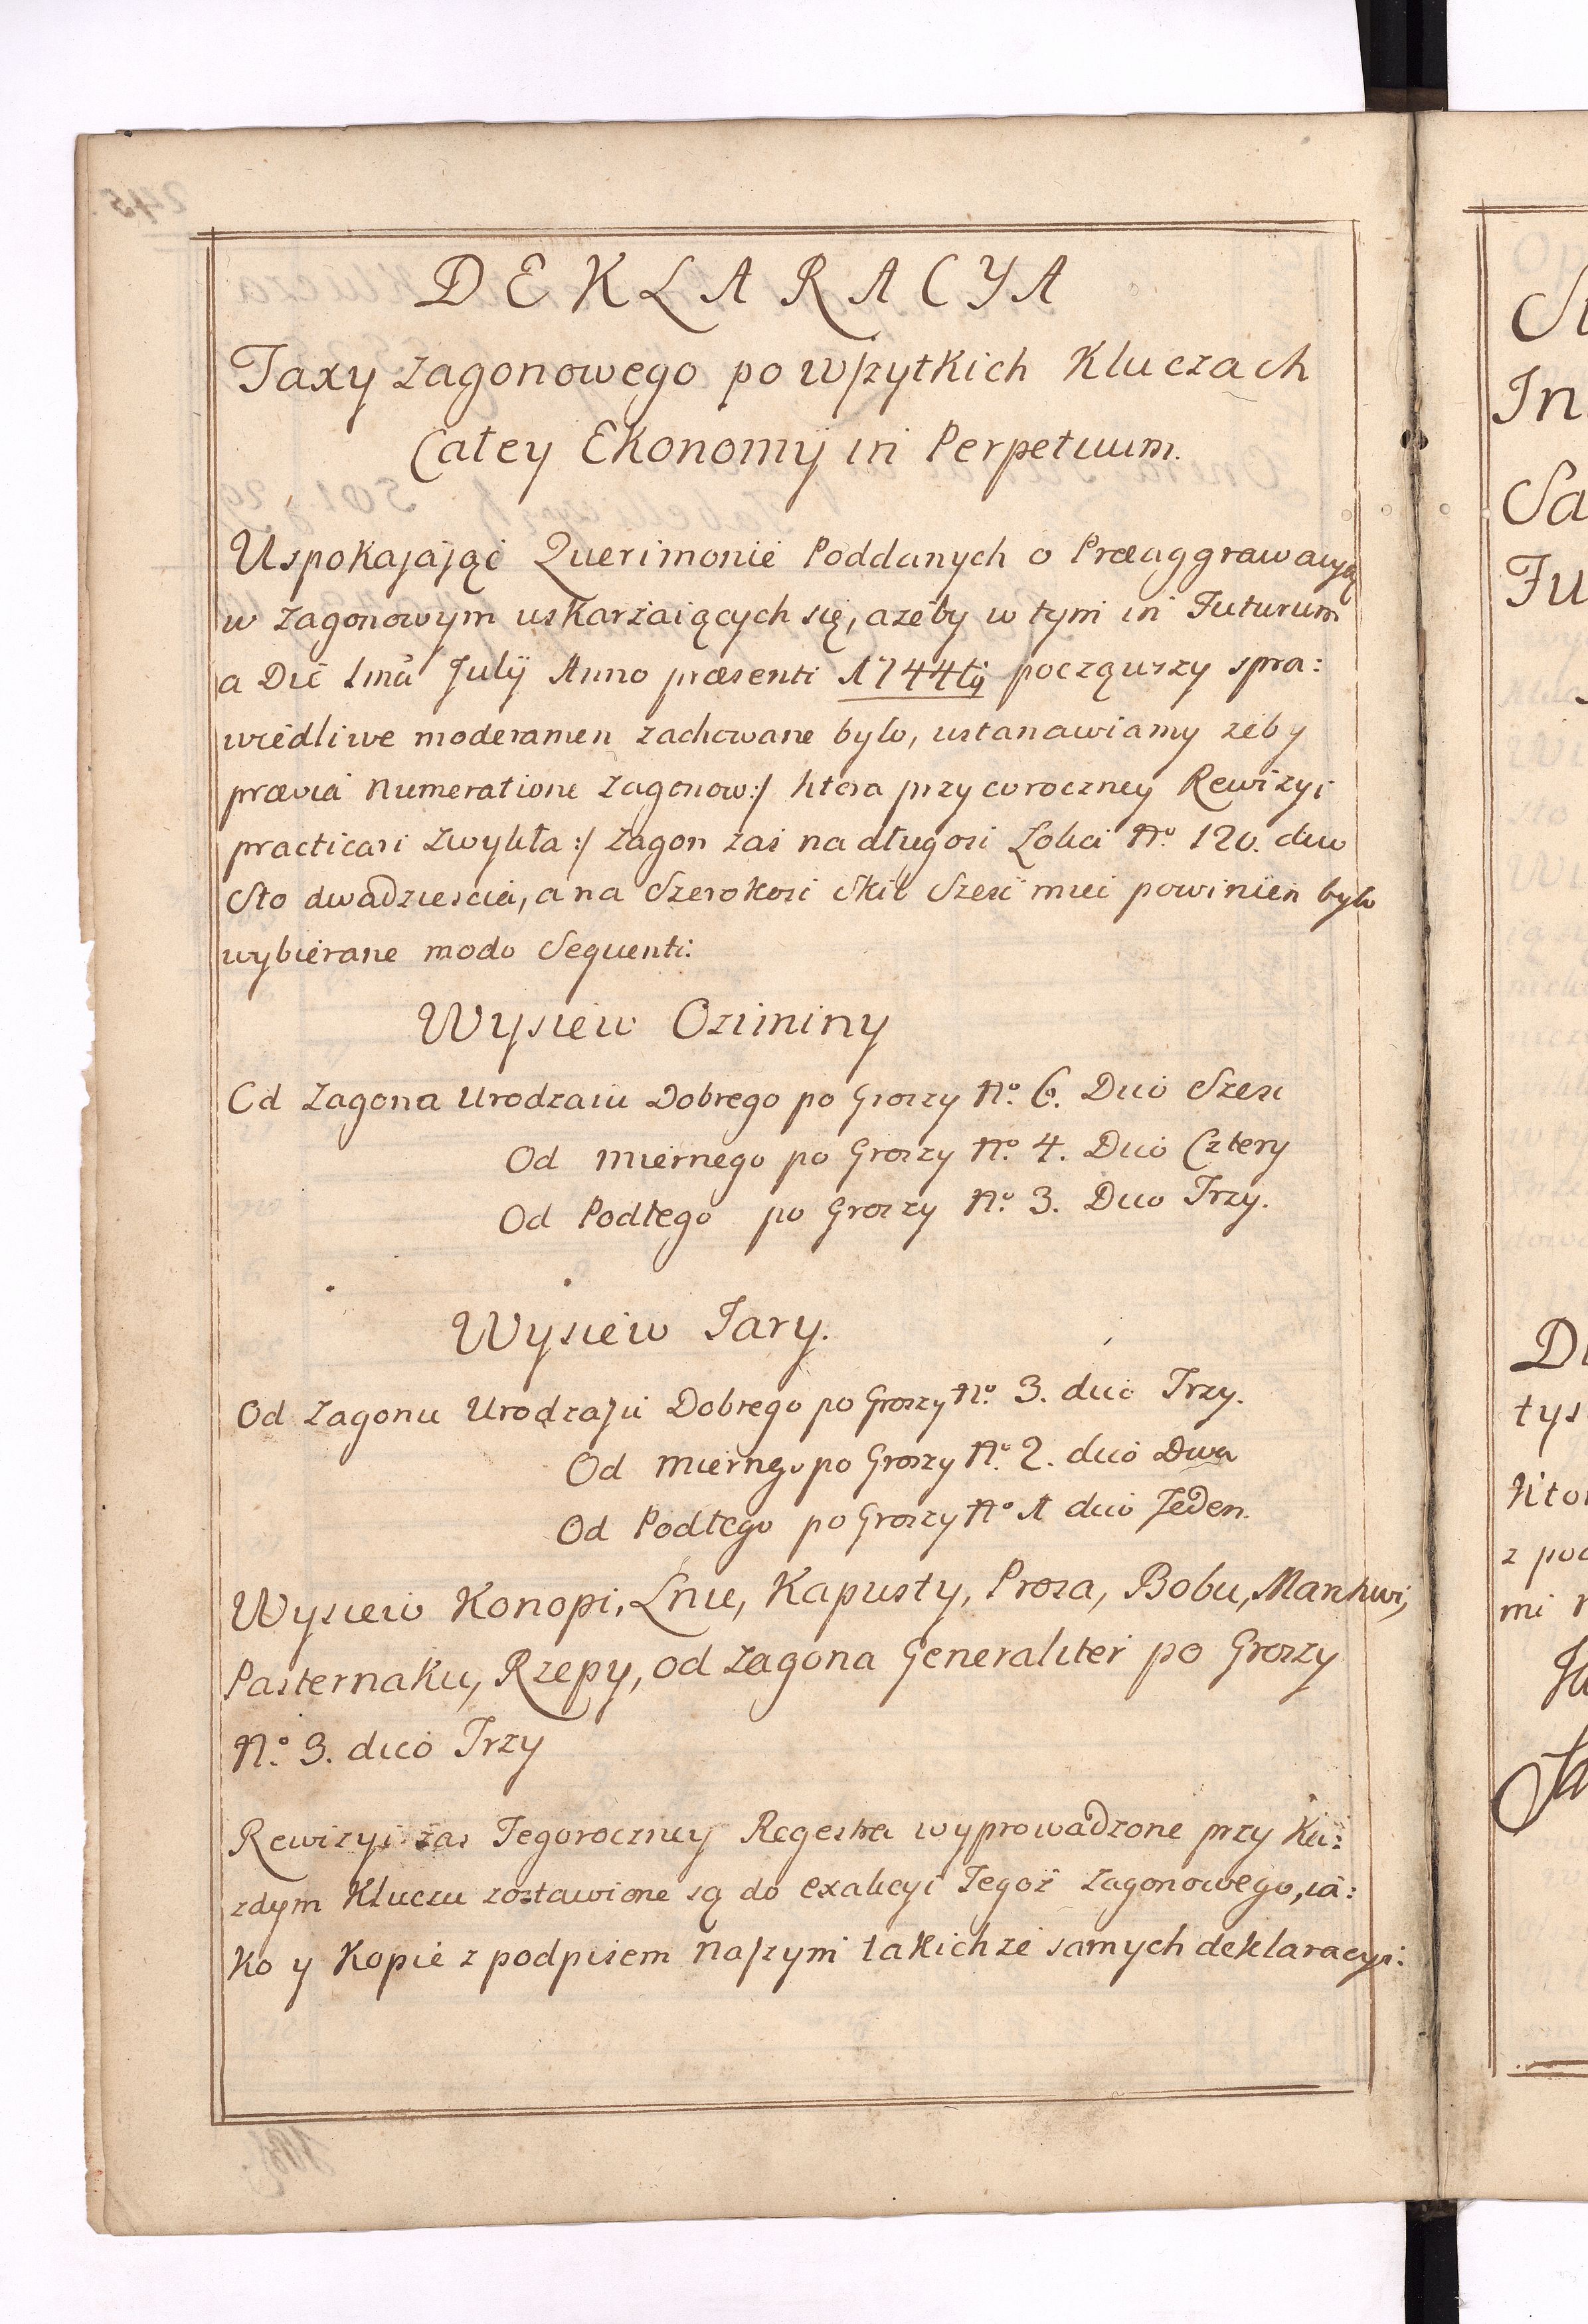 DEKLARACYA
Taxy zagonowego po wszytkich Kluczach
Całey Ekonomÿ in Perpetuum.
Uspokajając Querimonie Poddanych o Præaggrawacyą
w zagonowym uskarżaiących się, ażeby w tym in Futurum
a Die 1ma Julÿ Anno præsenti 1744tị począwszy spra:
wiedliwe moderamen zachowane było, ustanawiamy żeby
prævia Numeratione Zagonow :/ ktora przy coroczney Rewizyi
practicari zwykła :/ Zagon zaś na długosi Lokci No. 120. duo
Sto dwadziescia, a na Szerokosi Skib Szesć miec powinien było
wybierane modo Sequenti:
Wysiew Oziminy
Od Zagona Urodzaiu Dobrego po Groszy No. 6. Dico Szesc
Od miernego po Groszy No. 4. Dico Cztery
Od Podłego po Groszy No. 3. Dico Trzy.
Wysiew Jary.
Od Zagonu Urodzaju Dobrego po Groszy No. 3. dico Trzy.
Od miernego po Groszy No. 2. dico Dwa
Od Podłego po Groszy No 1 dico Jeden.
Wysiew Konopi, Lnu, Kapusty, Prosa, Bobu, Markwi,
Pasternaku, Rzepy, od Zagona Generaliter po Groszy
No. 3. dico Trzy
Rewizyi zas Tegoroczney Regestra wyprowadzone przy Ka:
zdym Kluczu zostawione są do exakcyi Tegoż Zagonowego, ia:
ko y Kopie z podpisem naszym takichże samych deklaracyi:
In
Sa
Fu
tys
ktor
mi